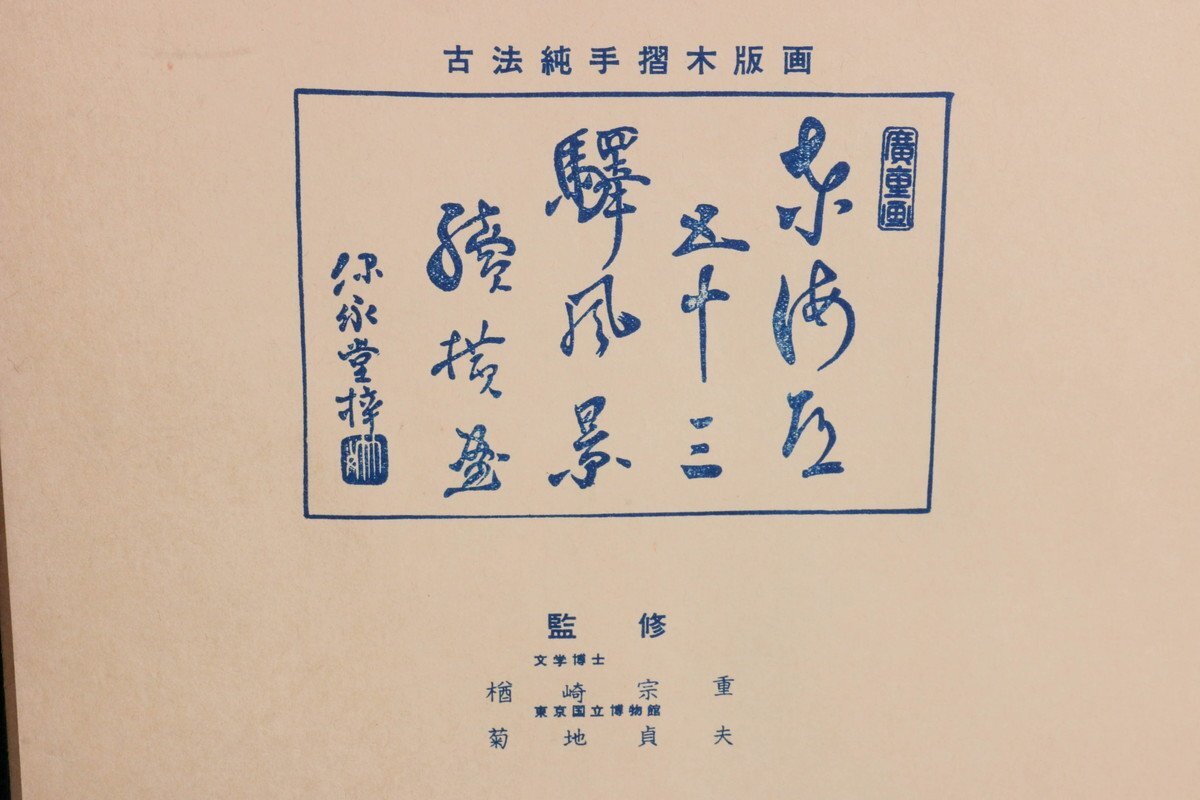 古法純手摺木版画
廣重画
東海道
五十三
驛風景
續横画
保永堂梓
監修
文学博士
楢崎宗重
東京国立博物館
菊地貞夫